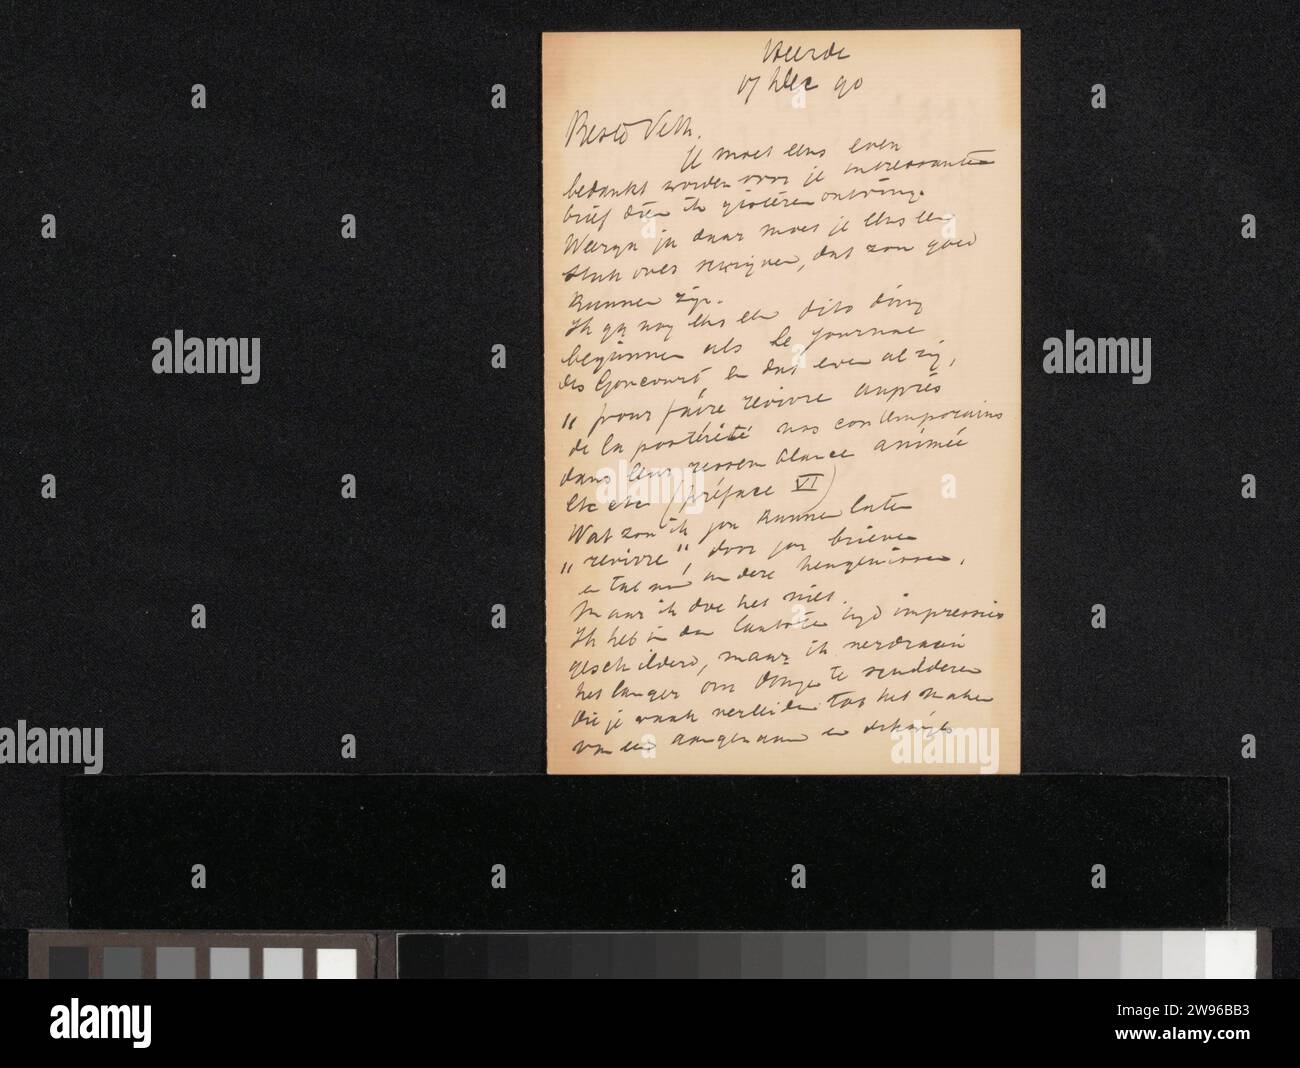 Heerde
17 Dec 90
Beste Veth.
Je moet eens even
bedankt worden voor je interessanten
brief dien ik gisteren ontving.
ja daar moet je eens een
stuk over schrijven, dat zou goed
kunnen zijn.
Ik ga nog eens een dito ding
beginnen als le Journal
des Goncourt, en dat even al zij,
"pour faire revivre auprès
de la postérité nos contemporains
dans leur ressemblance animée
etc etc (préface VI)
Wat zou ik jou kunnen laten
"revivre", door jou brieven
en tal van andere heugenissen.
Maar ik doe het niet.
Ik heb in den laatsten tijd impressies
geschilderd, maar ik verdraai
het langer om dingen te
die je vaak verleiden tot het maken
van een aangenaam en
alamy
alamy
alamy
alamy
2W96BB3
www.alamy.com